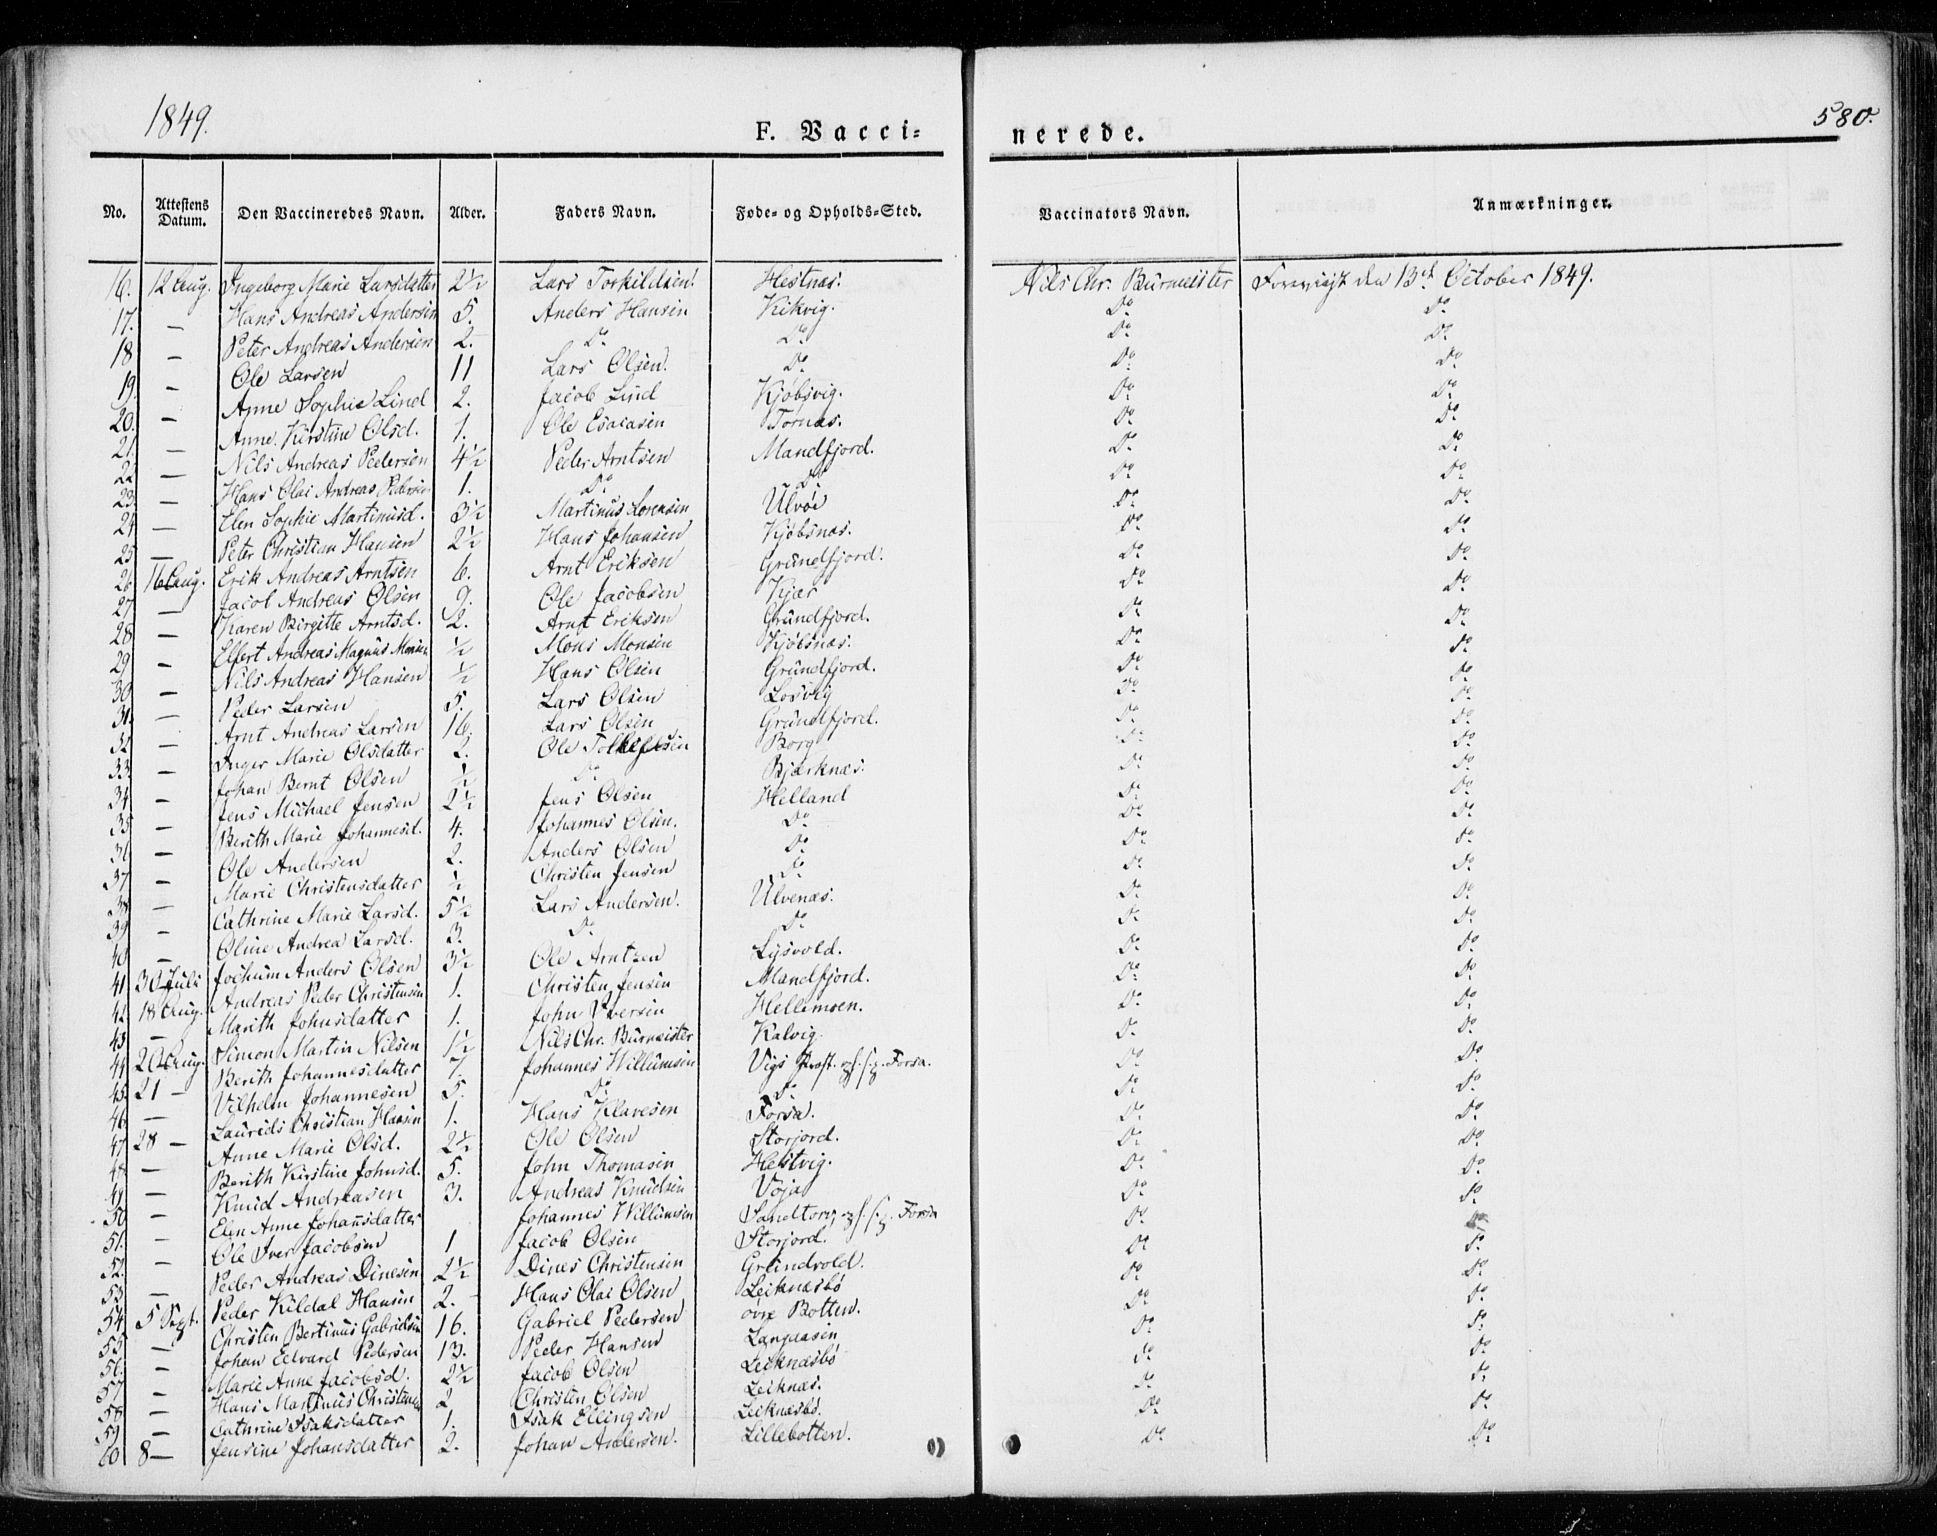 1849.
580.
F. Vacci=
nerede.
No. Attestens Datum. Den Vaccineredes Navn. Alder. Faders Navn. Føde- og Opholds-Sted. Vaccinators Navn. Anmærkninger.
16. 12 Aug. Ingeborg Marie Larsdatter 2½ Lars Torkildsen. Hestnæs. Nils Chr. Burmeister Foreviist den 13de October 1849.
17. — Hans Andreas Andersen 5. Anders Hansen Kikvig. Do Do
18 — Peter Andreas Andersen 2. Do Do Do Do
19. — Ole Larsen 11 Lars Olsen. Do Do Do
20. — Anne Sophie Lind 2. Jacob Lind Kjøbsvig. Do Do
21. — Anne Kirstine Olsd. 1. Ole Esaiasen Tornæs. Do Do
22 — Nils Andreas Pedersen 4½ Peder Arntsen Mandfjord. Do Do
23. — Hans Olai Andreas Pedersen 1. Do Do Do Do
24. — Elen Sophie Martinusd. 3½ Martinus Lorensen Ulvøe Do Do
25. — Peter Christian Hansen 2½ Hans Johansen Kjøbsnæs. Do Do
26 16 Aug. Erik Andreas Arntsen 6. Arnt Eriksen Grundfjord. Do Do
27. — Jacob Andreas Olsen 9. Ole Jacobsen Kjær Do Do
28 — Karen Birgitte Arntsd. 2. Arnt Eriksen Grundfjord. Do Do
29 — Elfert Andreas Magnus Monsen ½ Mons Monsen Kjøbsnæs. Do Do
30 — Nils Andreas Hansen ½ Hans Olsen Grundfjord. Do Do
31. — Peder Larsen 5. Lars Olsen Losvig Do Do
32 — Arnt Andreas Larsen 16. Lars Olsen Grundfjord. Do Do
33. — Inger Marie Olsdatter 2. Ole Tollefsen Borg Do Do
34 — Johan Bernt Olsen ½ Do Bjerknæs. Do Do
35 — Jens Michael Jensen 2½ Jens Olsen Helland Do Do
36 — Berith Marie Johannesd. 4. Johannes Olsen. Do Do Do
37. — Ole Andersen 2. Anders Olsen Do Do Do
38 — Marie Christensdatter ½ Christen Jensen Do Do Do
39 — Cathrine Marie Larsd. 5½ Lars Andersen. Ulvenæs. Do Do
40 — Oline Andrea Larsd. 3. Do Do Do Do
41 30 Juli Jochum Anders Olsen 3½ Ole Arntzen Lysvold. Do Do
42 18 Aug. Andreas Peder Christensen 1. Christen Jensen Mandfjord. Do Do
43 — Marith Johnsdatter 1. John Iversen Hellemoen. Do Do
44 20 Aug. Simon Martin Nilsen 1½ Nils Chr. Burmeister Kalvig. Do Do
45 21 — Berith Johannesdatter 7. Johannes Willumsen Vigs Præst. Forsa. Do Do
46 — Vilhelm Johannesen 5. Do Do Do Do
47 28 — Laurids Christian Hansen 1. Hans Klavesen Forsa. Do Do
48 — Anne Marie Olsd. 2½ Ole Olsen Storjord. Do Do
49 — Berith Kirstine Johnsd. 5. John Thomasen Hestvig. Do Do
50 — Knud Andreasen 3. Andreas Knudsen Voja Do Do
51. — Elen Anne Johansdatter Johannes Willumsen Sandtorv Forsa Do Do
52. — Ole Iver Jacobsen 1 Jacob Olsen Storjord. Do Do
53. — Peder Andreas Dinesen 2½ Dines Christensen Grundvold. Do Do
54 5 Sept. Peder Kildal Hansen 2. Hans Olai Olsen Leiknæsbø Do Do
55 — Christen Bertinus Gabrielsen 16. Gabriel Pedersen øvre Botten. Do Do
56. — Johan Edvard Pedersen 13. Peder Hansen Langaasen Do Do
57 — Marie Anne Jacobsd. 2½ Jacob Olsen Leiknæsbø Do Do
58 — Hans Martinus Christensen 2 Christen Olsen Leiknæs. Do Do
59 — Cathrine Isaksdatter 1. Isak Ellingsen Leiknæsbø. Do Do
60 8 — Jensine Johansdatter 2. Johan Andersen. Lillebotten. Do Do